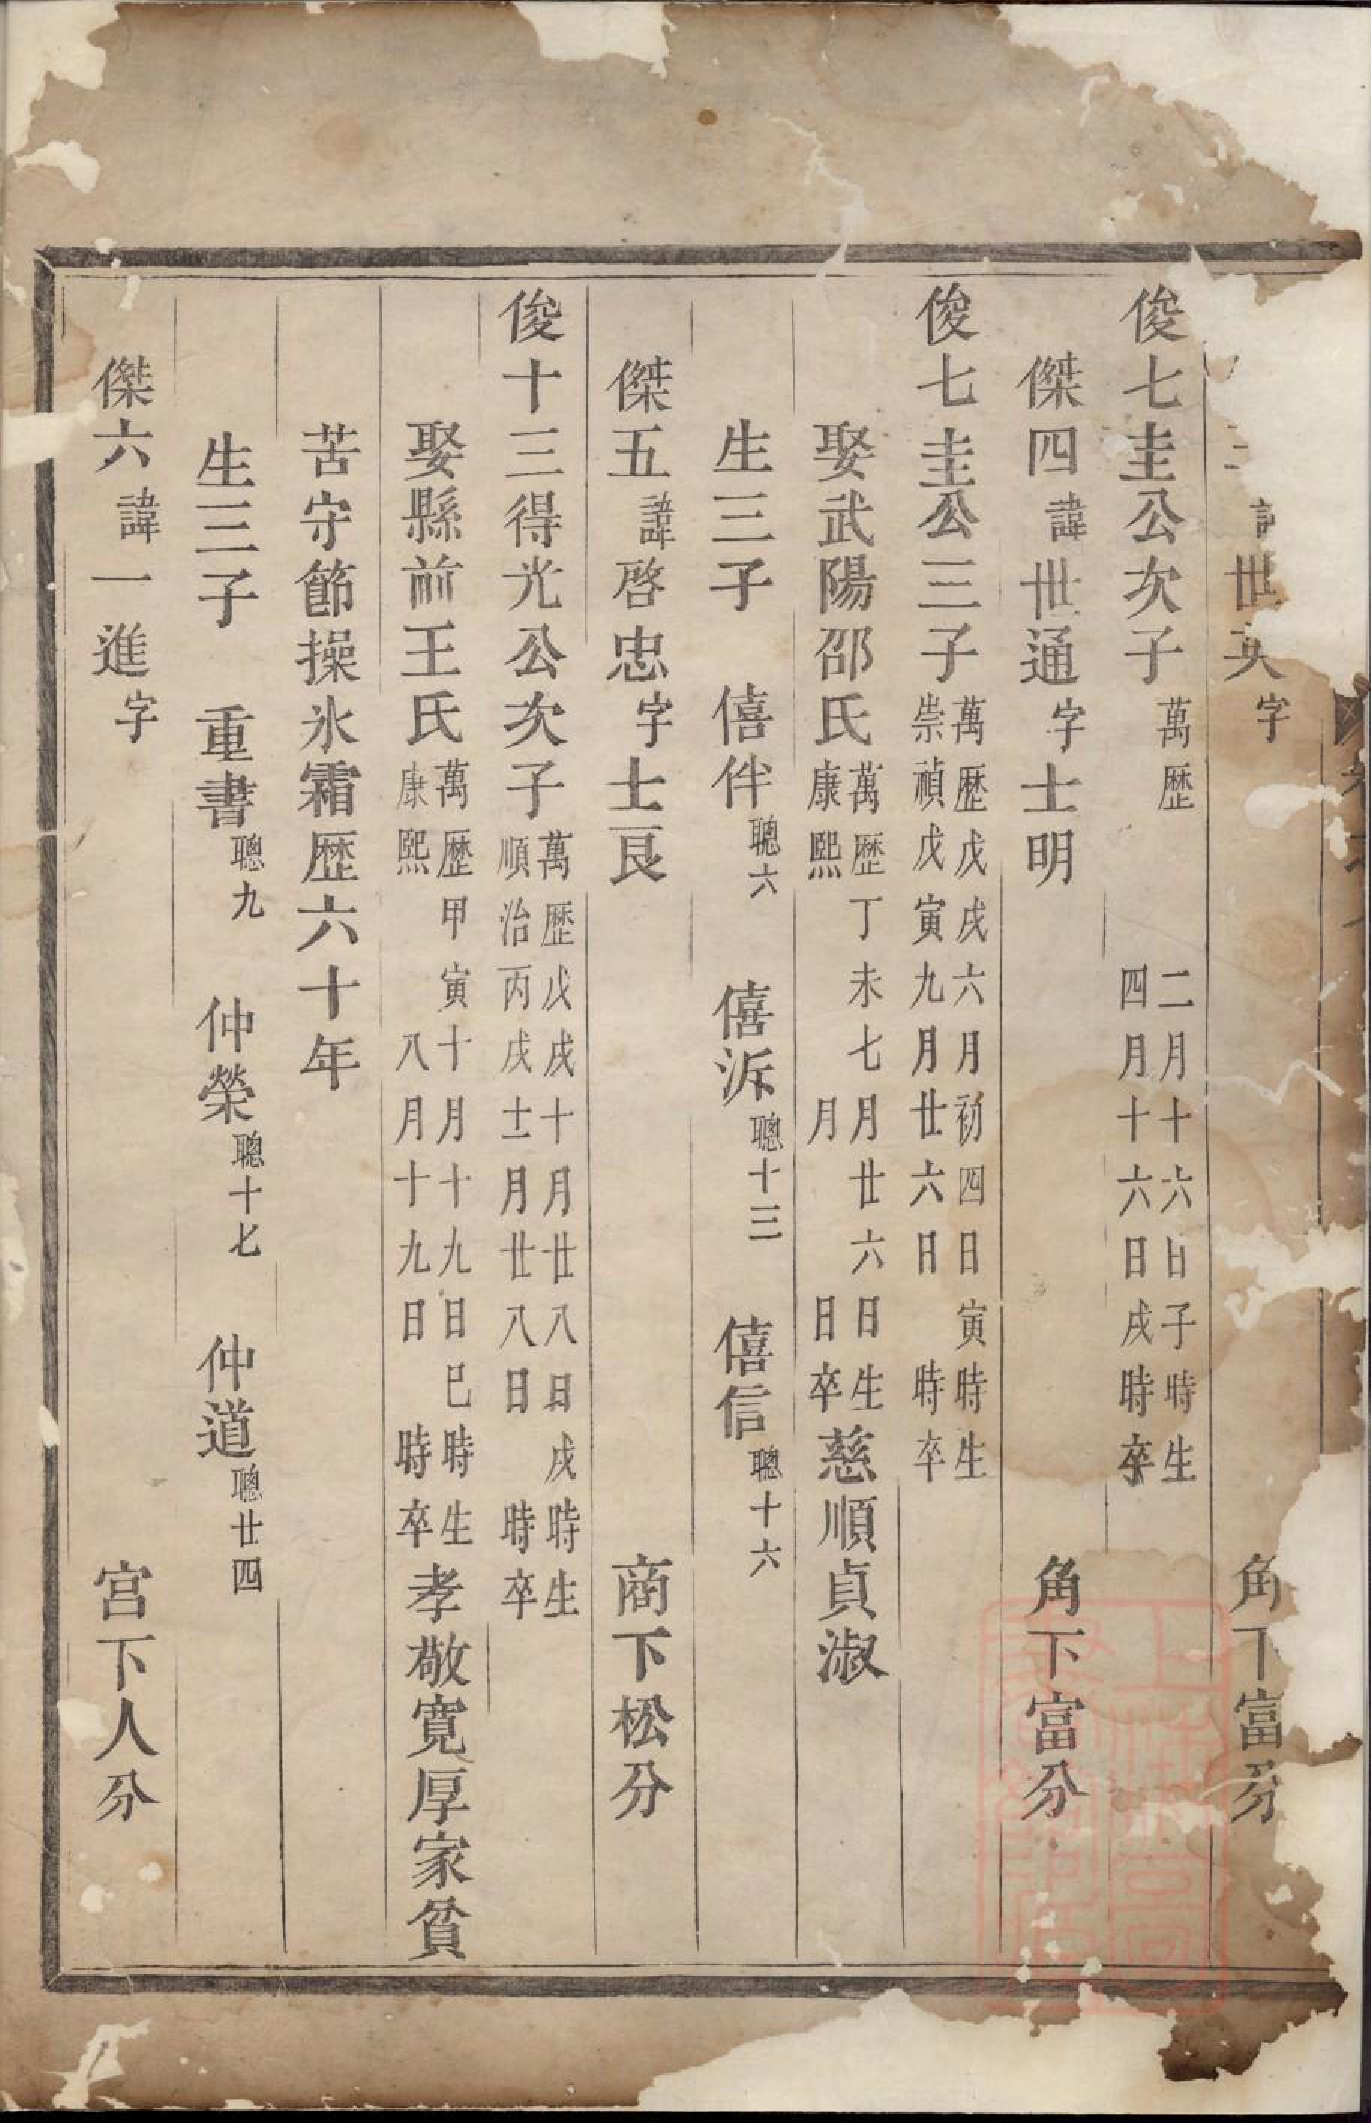 世英字 角下富分
俊七圭公次子萬歴 二月十六日子時生 四月十六日戌時卒
傑四諱世通字士明 角下富分
俊七圭公三子萬歴戊戌六月初四日寅時生 崇禎戊寅九月廿六日 時卒
娶武陽邵氏萬歴丁未七月廿六日生 康熙 月 日卒慈順貞淑
生三子 僖伴聰六 僖泝聰十三 僖信聰十六
傑五諱啓忠字士良 商下松分
俊十三得光公次子萬歴戊戌十月廿八日戌時生 順治丙戌十二月廿八日 時卒
娶縣前王氏萬歴甲寅十月十九日巳時生 康熙 八月十九日 時卒孝敬寬厚家貧
苦守節操氷霜歴六十年
生三子 重書聰九 仲榮聰十七 仲道聰廿四
傑六諱一進字 宫下人分